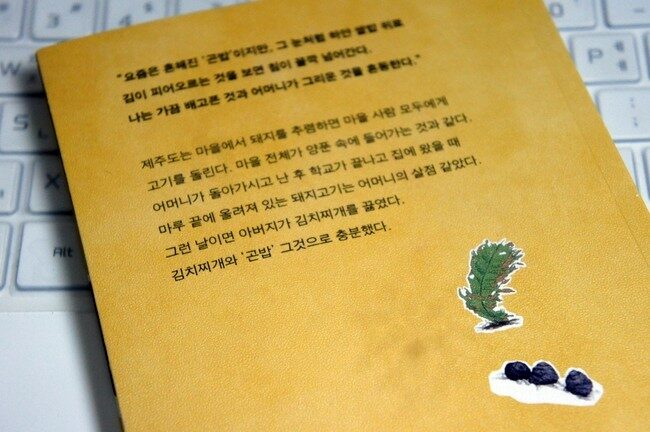 "요즘은 흔해진 '곤밥'이지만, 그 눈처럼 하얀 쌀밥 위로
김이 피어오르는 것을 보면 침이 꼴깍 넘어간다.
나는 가끔 배고픈 것과 어머니가 그리운 것을 혼동한다."
제주도는 마을에서 돼지를 추렴하면 마을 사람 모두에게
고기를 돌린다. 마을 전체가 양푼 속에 들어가는 것과 같다.
어머니가 돌아가시고 난 후 학교가 끝나고 집에 왔을 때
마루 끝에 올려져 있는 돼지고기는 어머니의 살점 같았다.
그런 날이면 아버지가 김치찌개를 끓였다.
김치찌개와 '곤밥' 그것으로 충분했다.
Alt